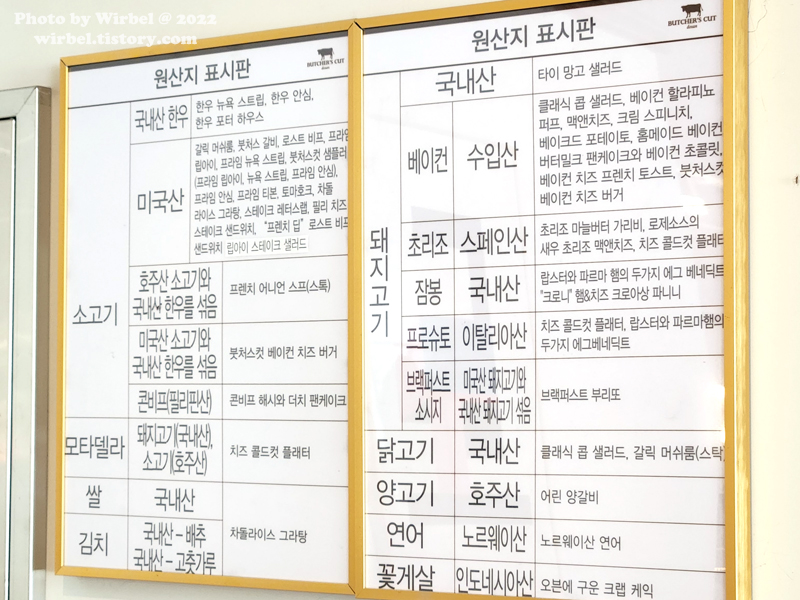 Photo by Wirbel @ 2022
wirbel.tistory.com
원산지 표시판
BUTCHER'S CUT
소고기
국내산 한우
한우 뉴욕 스트립, 한우 안심,
한우 포터 하우스
미국산
갈릭 머쉬룸, 붓처스 갈비, 로스트 비프, 프라임
립아이, 프라임 뉴욕 스트립, 붓처스컷 샘플러
(프라임 립아이, 뉴욕 스트립, 프라임 안심),
프라임 안심, 프라임 티본, 토마호크, 차돌
라이스 그라탕, 스테이크 레터스랩, 필리 치즈
스테이크 샌드위치, "프렌치 딥" 로스트 비프
샌드위치 립아이 스테이크 샐러드
호주산 소고기와
국내산 한우를 섞음
프렌치 어니언 스프(스톡)
미국산 소고기와
국내산 한우를 섞음
붓처스컷 베이컨 치즈 버거
콘비프(필리핀산)
콘비프 해시와 더치 팬케이크
모타델라
돼지고기(국내산),
소고기(호주산)
치즈 콜드컷 플래터
쌀
국내산
김치
국내산 – 배추
국내산 – 고춧가루
차돌라이스 그라탕
원산지 표시판
BUTCHER'S CUT
돼지고기
국내산
타이 망고 샐러드
베이컨
수입산
클래식 콥 샐러드, 베이컨 할라피뇨
퍼프, 맥앤치즈, 크림 스피니치,
베이크드 포테이토, 홈메이드 베이컨
버터밀크 팬케이크와 베이컨 초콜릿,
베이컨 치즈 프렌치 토스트, 붓처스컷
베이컨 치즈 버거
초리조
스페인산
초리조 마늘버터 가리비, 로제소스의
새우 초리조 맥앤치즈, 치즈 콜드컷 플래터
잠봉
국내산
랍스터와 파르마 햄의 두가지 에그 베네딕트
"크로니" 햄&치즈 크로아상 파니니
프로슈토
이탈리아산
치즈 콜드컷 플래터, 랍스터와 파르마햄의
두가지 에그베네딕트
브랙퍼스트
소시지
미국산 돼지고기와
국내산 돼지고기 섞음
브랙퍼스트 부리또
닭고기
국내산
클래식 콥 샐러드, 갈릭 머쉬룸(스탁)
양고기
호주산
어린 양갈비
연어
노르웨이산
노르웨이산 연어
꽃게살
인도네시아산
오븐에 구운 크랩 케익